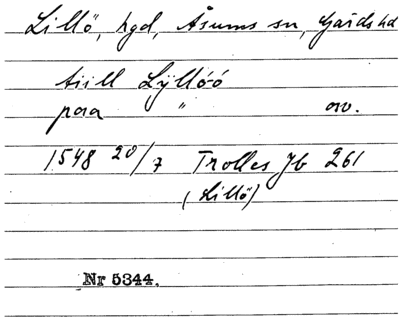 Lillö, hgd, Åsums sn, Gärds hd
tiill Lÿllóó
paa " av.
1548 20/7 Trolles Jb 261
(Lillö)
Nr 5344.